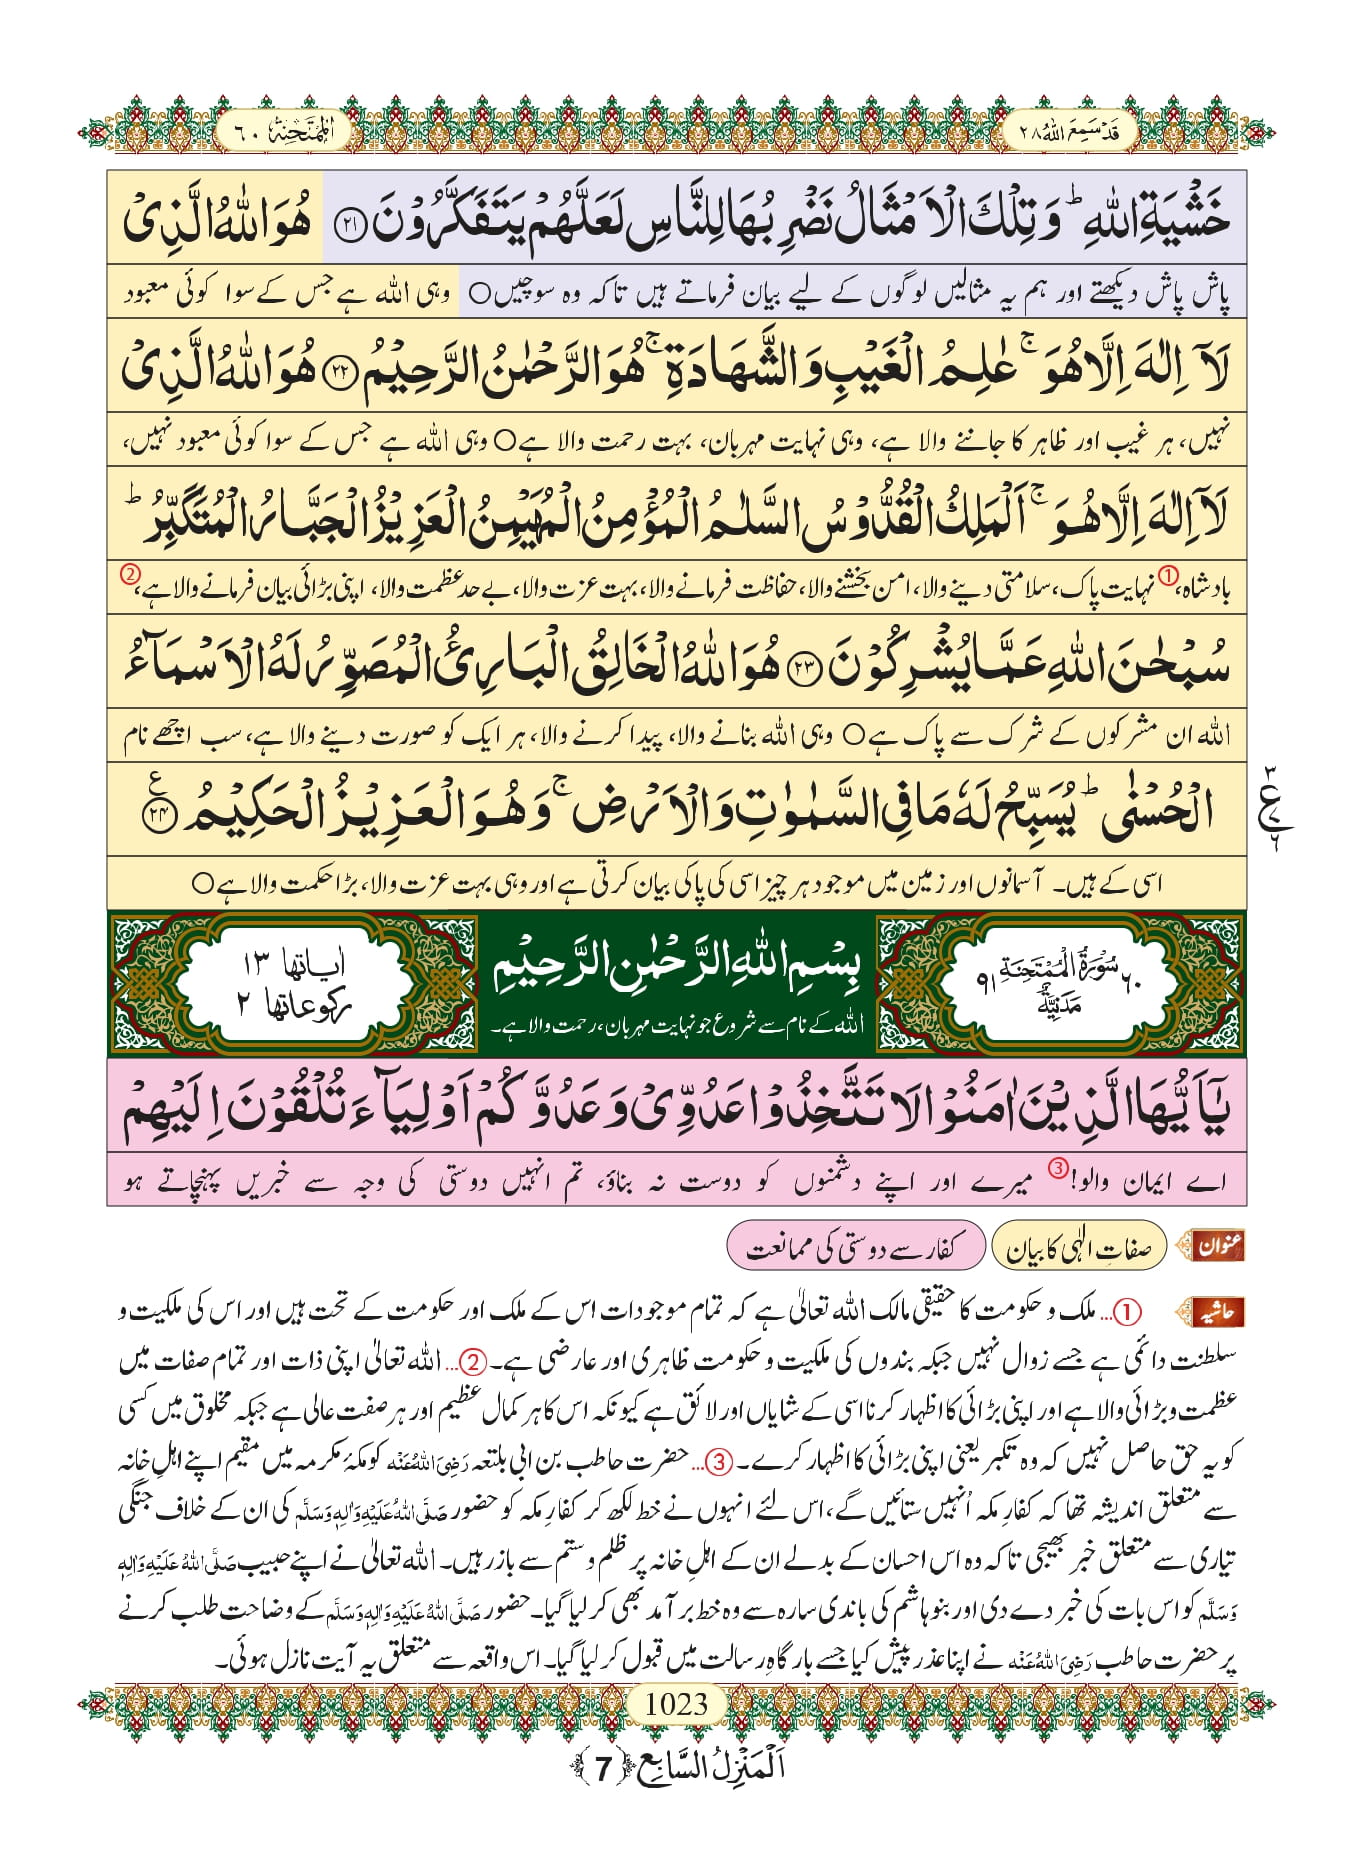 قَدْ سَمِعَ اللّٰهُ ٢٨
اَلْمُمْتَحِنَة ٦٠
خَشْیَةِ اللّٰهِؕ وَ تِلْكَ الْاَمْثَالُ نَضْرِبُهَا لِلنَّاسِ لَعَلَّهُمْ یَتَفَكَّرُوْنَ ﴿۲۱﴾ هُوَ اللّٰهُ الَّذِیْ
پاش پاش دیکھتے اور ہم یہ مثالیں لوگوں کے لیے بیان فرماتے ہیں تاکہ وہ سوچیں○ وہی اللہ ہے جس کے سوا کوئی معبود
لَاۤ اِلٰهَ اِلَّا هُوَۚ عٰلِمُ الْغَیْبِ وَ الشَّهَادَةِۚ هُوَ الرَّحْمٰنُ الرَّحِیْمُ ﴿۲۲﴾ هُوَ اللّٰهُ الَّذِیْ
نہیں، ہر غیب اور ظاہر کا جاننے والا ہے، وہی نہایت مہربان، بہت رحمت والا ہے○ وہی اللہ ہے جس کے سوا کوئی معبود نہیں،
لَاۤ اِلٰهَ اِلَّا هُوَۚ اَلْمَلِكُ الْقُدُّوْسُ السَّلٰمُ الْمُؤْمِنُ الْمُهَیْمِنُ الْعَزِیْزُ الْجَبَّارُ الْمُتَكَبِّرُؕ
بادشاہ،① نہایت پاک، سلامتی دینے والا، امن بخشنے والا، حفاظت فرمانے والا، بہت عزت والا، بے حد عظمت والا، اپنی بڑائی بیان فرمانے والا ہے،②
سُبْحٰنَ اللّٰهِ عَمَّا یُشْرِكُوْنَ ﴿۲۳﴾ هُوَ اللّٰهُ الْخَالِقُ الْبَارِئُ الْمُصَوِّرُ لَهُ الْاَسْمَآءُ
اللہ ان مشرکوں کے شرک سے پاک ہے○ وہی اللہ بنانے والا، پیدا کرنے والا، ہر ایک کو صورت دینے والا ہے، سب اچھے نام
الْحُسْنٰىؕ یُسَبِّحُ لَهٗ مَا فِی السَّمٰوٰتِ وَ الْاَرْضِۚ وَ هُوَ الْعَزِیْزُ الْحَكِیْمُ ﴿۲۴﴾ ع
٣ ع ٦
اسی کے ہیں۔ آسمانوں اور زمین میں موجود ہر چیز اسی کی پاکی بیان کرتی ہے اور وہی بہت عزت والا، بڑا حکمت والا ہے○
٦٠ سُوْرَةُ الْمُمْتَحِنَةِ ٩١
مَدَنِیَّةٌ
بِسْمِ اللّٰهِ الرَّحْمٰنِ الرَّحِیْمِ
اللہ کے نام سے شروع جو نہایت مہربان، رحمت والا ہے۔
اٰیاتها ١٣
رکوعاتها ٢
یٰۤاَیُّهَا الَّذِیْنَ اٰمَنُوْا لَا تَتَّخِذُوْا عَدُوِّیْ وَ عَدُوَّكُمْ اَوْلِیَآءَ تُلْقُوْنَ اِلَیْهِمْ
اے ایمان والو!③ میرے اور اپنے دشمنوں کو دوست نہ بناؤ، تم انہیں دوستی کی وجہ سے خبریں پہنچاتے ہو
عنوان صفاتِ الٰہی کا بیان کفار سے دوستی کی ممانعت
حاشیہ ①... ملک و حکومت کا حقیقی مالک اللہ تعالیٰ ہے کہ تمام موجودات اس کے ملک اور حکومت کے تحت ہیں اور اس کی ملکیت و
سلطنت دائمی ہے جسے زوال نہیں جبکہ بندوں کی ملکیت و حکومت ظاہری اور عارضی ہے۔ ②... اللہ تعالیٰ اپنی ذات اور تمام صفات میں
عظمت و بڑائی والا ہے اور اپنی بڑائی کا اظہار کرنا اسی کے شایاں اور لائق ہے کیونکہ اس کا ہر کمال عظیم اور ہر صفت عالی ہے جبکہ مخلوق میں کسی
کو یہ حق حاصل نہیں کہ وہ تکبر یعنی اپنی بڑائی کا اظہار کرے۔ ③... حضرت حاطب بن ابی بلتعہ رَضِیَ اللّٰهُ عَنْهُ کو مکۂ مکرمہ میں مقیم اپنے اہلِ خانہ
سے متعلق اندیشہ تھا کہ کفارِ مکہ اُنہیں ستائیں گے، اس لئے انہوں نے خط لکھ کر کفارِ مکہ کو حضور صَلَّی اللّٰهُ عَلَیْهِ وَاٰلِهٖ وَسَلَّم کی ان کے خلاف جنگی
تیاری سے متعلق خبر بھیجی تاکہ وہ اس احسان کے بدلے ان کے اہلِ خانہ پر ظلم و ستم سے باز رہیں۔ اللہ تعالیٰ نے اپنے حبیب صَلَّی اللّٰهُ عَلَیْهِ وَاٰلِهٖ
وَسَلَّم کو اس بات کی خبر دے دی اور بنو ہاشم کی باندی سارہ سے وہ خط برآمد بھی کر لیا گیا۔ حضور صَلَّی اللّٰهُ عَلَیْهِ وَاٰلِهٖ وَسَلَّم کے وضاحت طلب کرنے
پر حضرت حاطب رَضِیَ اللّٰهُ عَنْهُ نے اپنا عذر پیش کیا جسے بارگاہِ رسالت میں قبول کر لیا گیا۔ اس واقعہ سے متعلق یہ آیت نازل ہوئی۔
1023
اَلْمَنْزِلُ السَّابِع ﴿7﴾